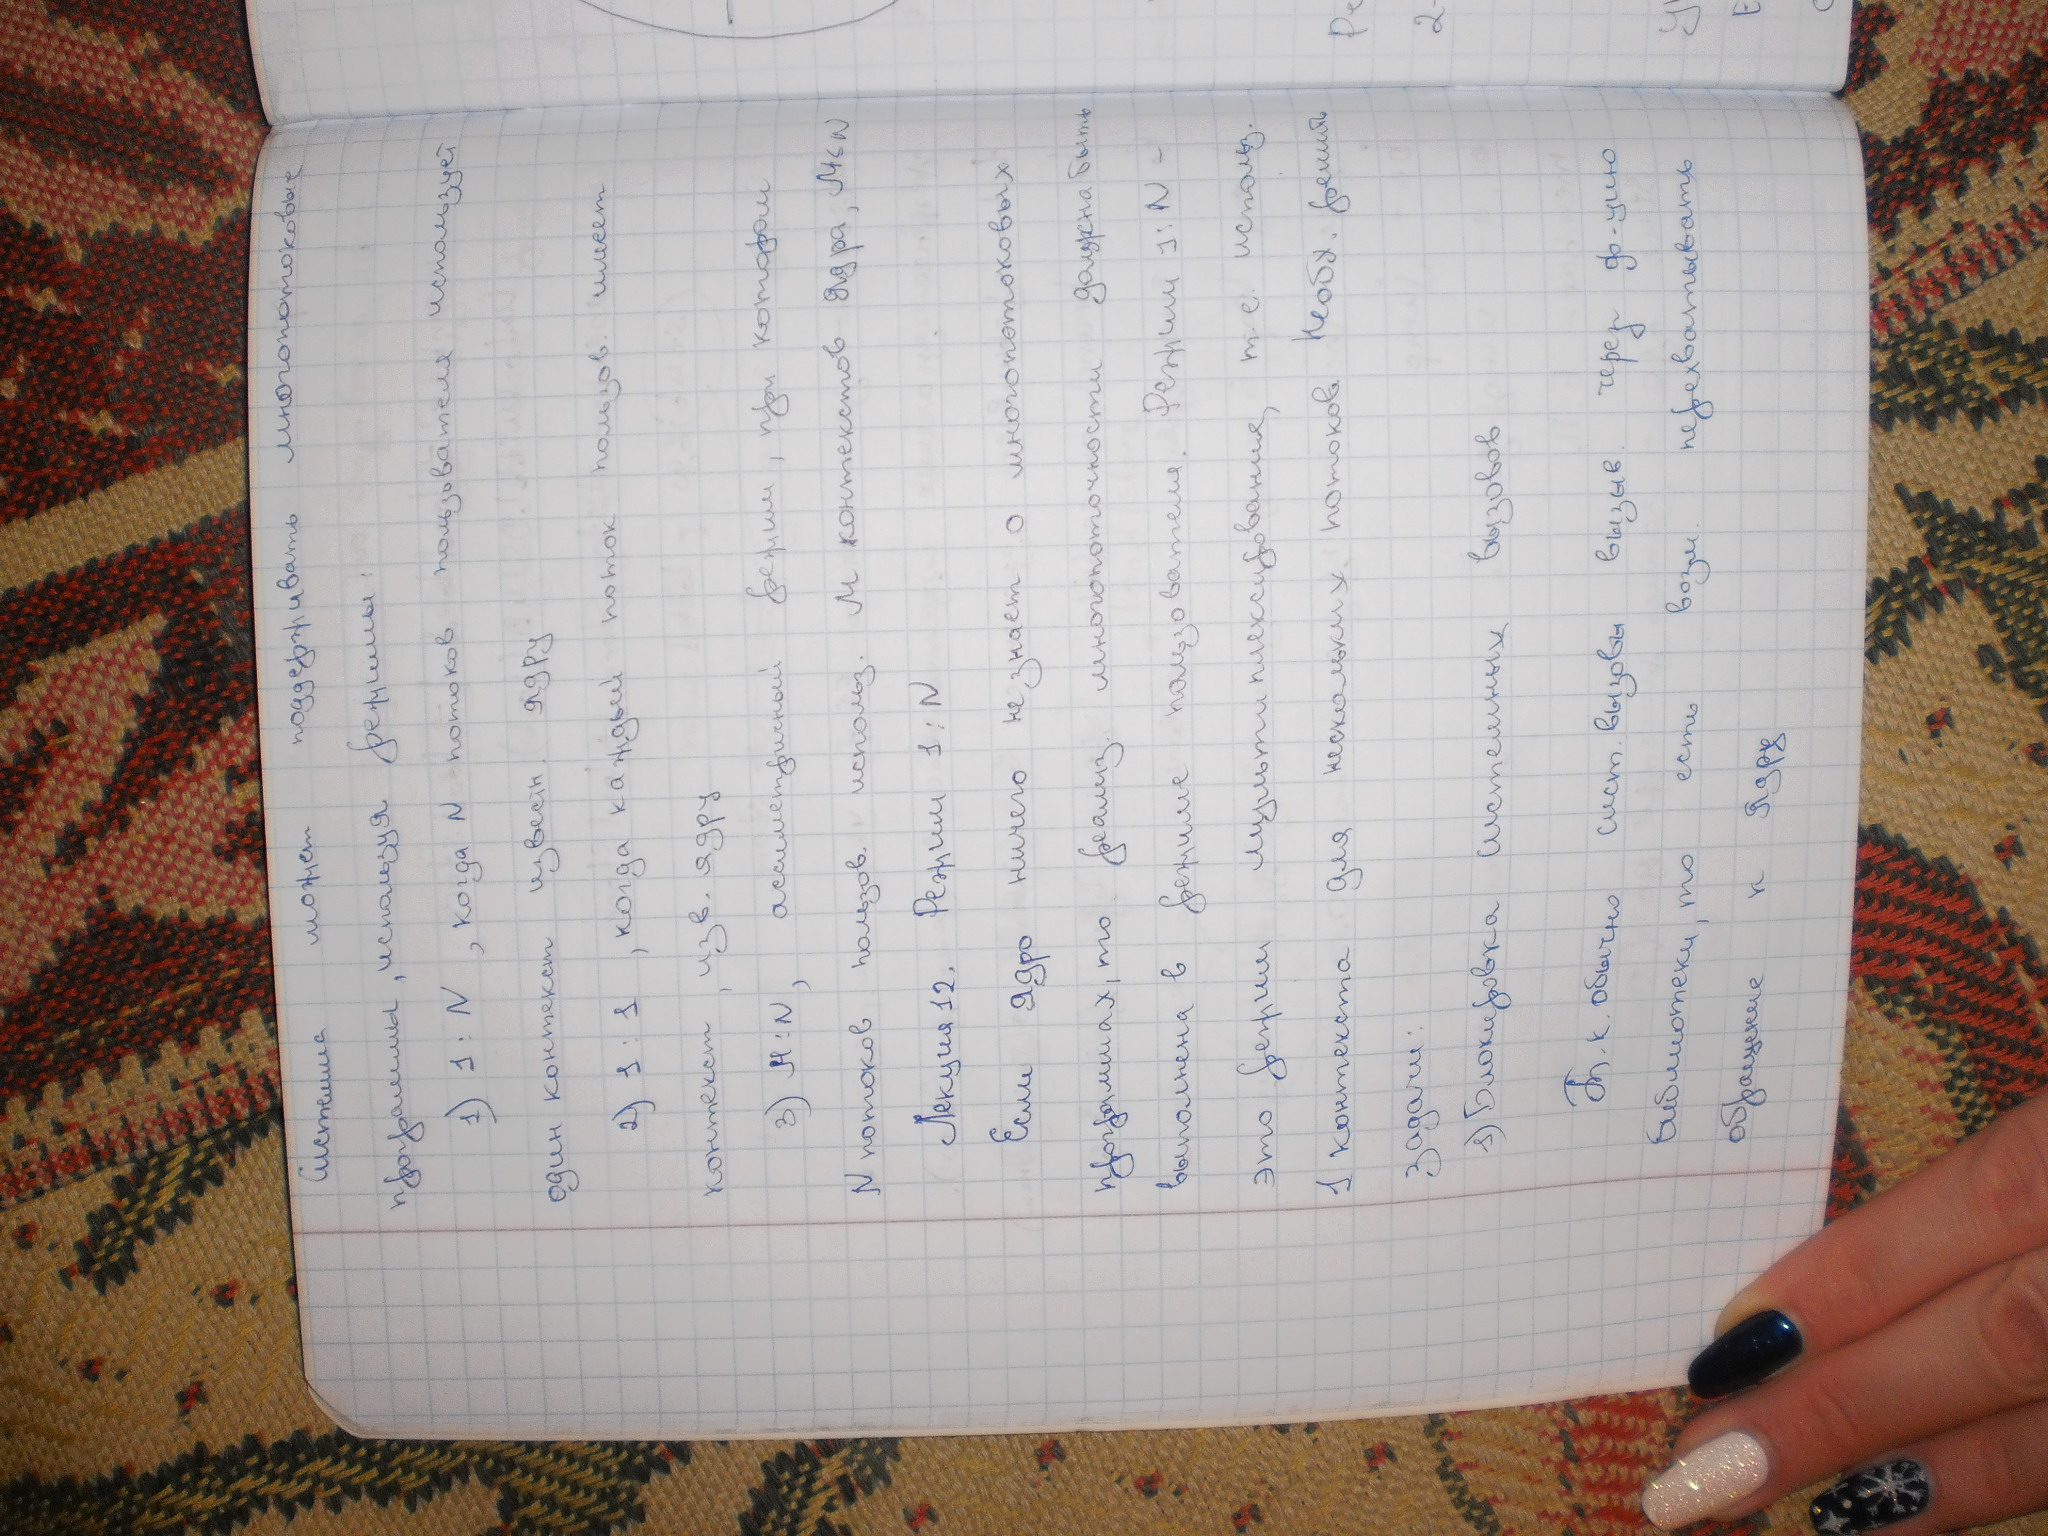 Система может поддерживать многопотоковые
программы, используя режимы:
1) 1:N, когда N потоков пользователя использует
один контекст извест. ядру.
2) 1:1, когда каждый поток пользов. имеет
контекст, изв. ядру
3) M:N, ассиметричный режим, при котором
N потоков пользов. использ. M контекстов ядра, M≤N
Лекция 12. Режим 1:N
Если ядро ничего не знает о многопотоковых
программах, то реализ. многопоточности должна быть
выполнена в режиме пользователя. Режим 1:N -
это режим мультиплексирования, т.е. использ.
1 контекста для нескольких потоков. Необх. решить
задачи:
1) Блокировка системных вызовов
Т.к. обычно сист. вызовы вызыв. через ф-цию
библиотеки, то есть возм. перехватывать
обращение к ядру
Ре
2-